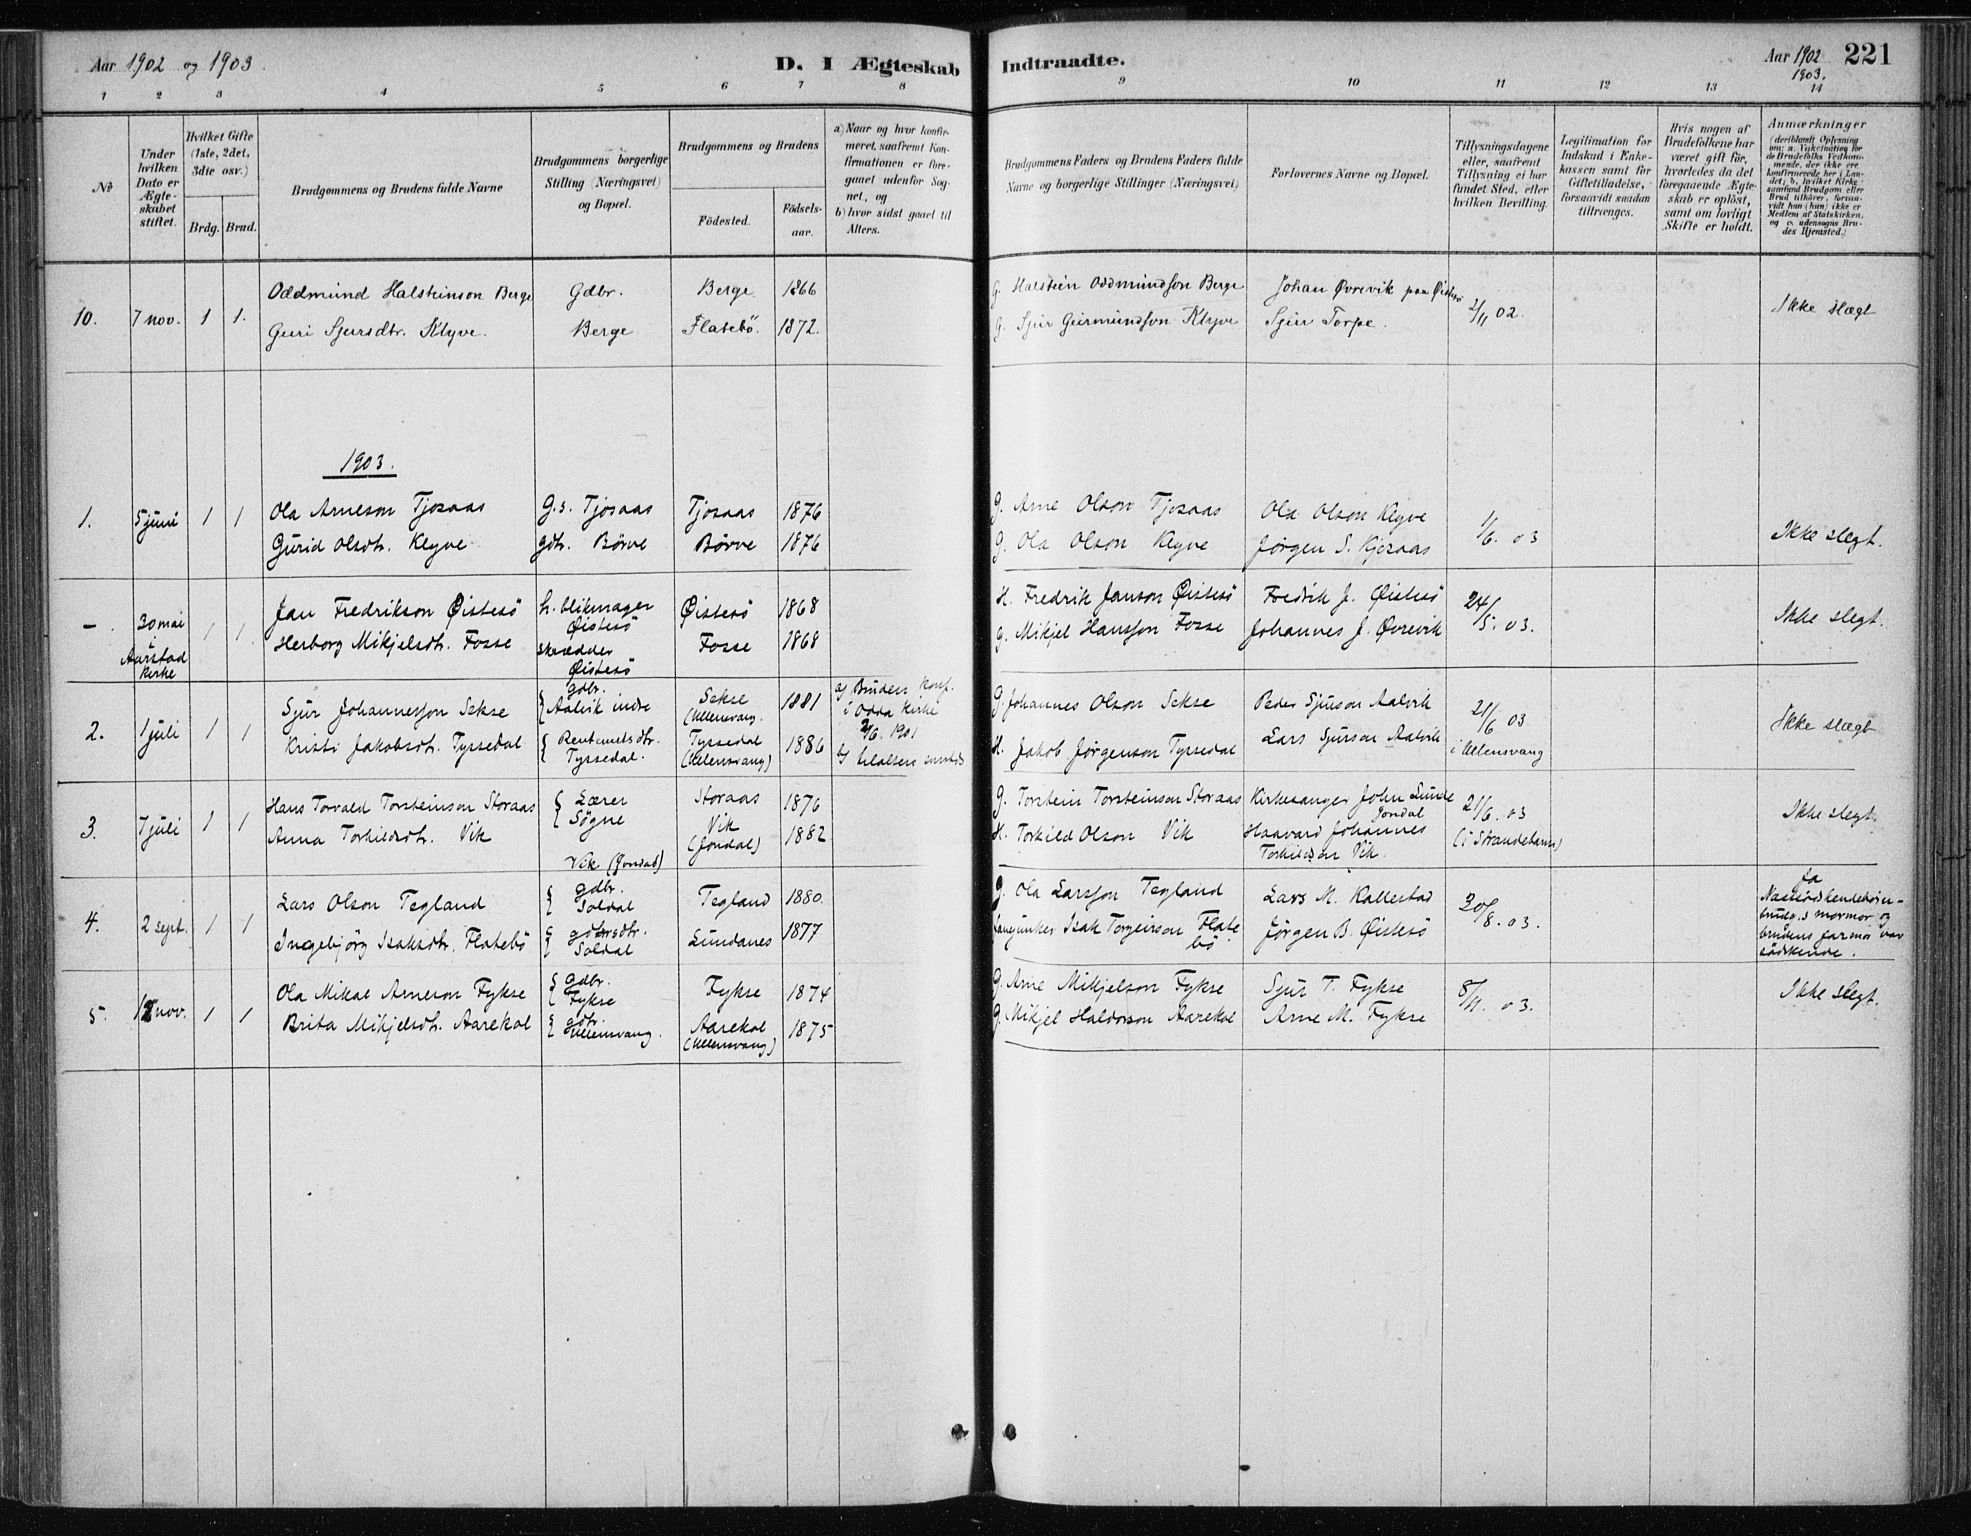 Aar 1902 og 1903.
D. I Ægteskab Indtraadte.
Aar 1902 1903. 221
1 2 3 4 5 6 7 8 9 10 11 12 13 14
No
Under hvilken Dato er Ægteskabet stiftet.
Hvilket Gifte (1ste, 2det, 3die osv.)
Brdg. Brud.
Brudgommens og Brudens fulde Navne
Brudgommens borgerlige Stilling (Næringsvei) og Bopæl.
Brudgommens og Brudens
Födested. Födselsaar.
a) Naar og hvor konfirmeret, saafremt Konfirmationen er foregaaet udenfor Sognet, og
b) hvor sidst gaaet til Alters.
Brudgommens Faders og Brudens Faders fulde Navne og borgerlige Stillinger (Næringsvei)
Forlovernes Navne og Bopæl.
Tillysningsdagene eller, saafremt Tillysning ei har fundet Sted, efter hvilken Bevilling.
Legitimation for Indskud i Enkekassen samt for Giftetilladelse, forsaavidt saadan tiltrænges.
Hvis nogen af Brudefolkene har været gift för, hvorledes da det foregaaende Ægteskab er oplöst, samt om lovligt Skifte er holdt.
Anmærkninger
(deriblandt Oplysning om: a. Vakcination for de Brudefolks Vedkommende, der ikke ere konfirmerede her i Landet; b. hvilket Kirkesamfund Brudgom eller Brud tilhörer, forsaavidt han (hun) ikke er Medlem af Statskirken, og c. udensogns Brudes Hjemsted.)
10. 7 nov. 1 1. Oddmund Halsteinson Berge Gdbr. Berge 1866 G. Halstein Oddmundson Berge Johan Øvrevik paa Øistesø 2/11 02. Ikke slægt
Guri Sjursdtr. Klyve. Berge Flatebö. 1872. G. Sjur Geirmundson Klyve Sjur Torpe.
1903.
1. 5 juni 1 1 Ola Arneson Tjosaas G.s. Tjosaas Tjosaas 1876 G. Arne Olson Tjosaas Ola Olson Klyve 1/6. 03 Ikke slegt.
Gurid Olsdtr. Klyve gdtr. Börve Börve 1876 G. Ola Olson Klyve Jörgen S. Kjosaas
- 30 mai i Aarstad kirke 1 1. Jan Fredrikson Øistesö h. blikmager Øistesö Øistesö 1868 H. Fredrik Janson Øistesö Fredrik J. Øistesö 24/5. 03. Ikke slegt.
Herborg Mikjelsdtr. Fosse skrædder Øistesö Fosse 1868 g. Mikjel Hansson Fosse Johannes J. Øvrevik
2. 1 juli 1 1 Sjur Johannesson Sekse gdbr. Aalvik indre Sekse (Ullensvang. 1881 a) Bruden konf. i Odda kirke 1901 G. Johannes Olson Sekse Peder Sjurson Aalvik 21/6 03 i Ullensvang Ikke slægt
Kristi Jakobsdtr. Tyssedal Tyssedal. Tyssedal (Ullensvang) 1886 b) H. Jakob Jörgenson Tyssedal Lars Sjurson Aalvik
3. 7 juli 1 1 Hans Torvald Torsteinson Storaas Lærer Sögne Storaas 1876 G. Torstein Torsteinson Storaas Kirkesanger John Lunde Jondal 21/6. 03 (i Strandebarm) Ikke slegt.
Anna Torkildsdtr. Vik Vik (Jondal) Vik (Jondal) 1882 H. Torkild Olson Vik Haavard Johannes Torkildson Vik.
4. 2 sept. 1 1 Lars Olson Tegland gdbr. Soldal Tegland 1880. G. Ola Larsson Tegland Lars M. Kallestad 30/8. 03. Ja
Ingebjörg Isaksdtr. Flatebö gdbrsdtr. Soldal Lundanes 1877 Isak Torgeirson Flatebö Jörgen B. Øistesö Næstsödskendebörn - brudg.s mormor og brudens farmor var södskende.
5. 12 nov. 1 1 Ola Mikal Arneson Fykse Gdbr. Fykse Fykse 1874 G. Arne Mikjelson Fykse Sjur T. Fykse 8/11. 03. Ikke slegt.
Brita Mikjelsdtr. Aarekol gdtr. Ullensvang. Aarekol (Ullensvang) 1875 G. Mikjel Haldorson Aarekol Arne M. Fykse